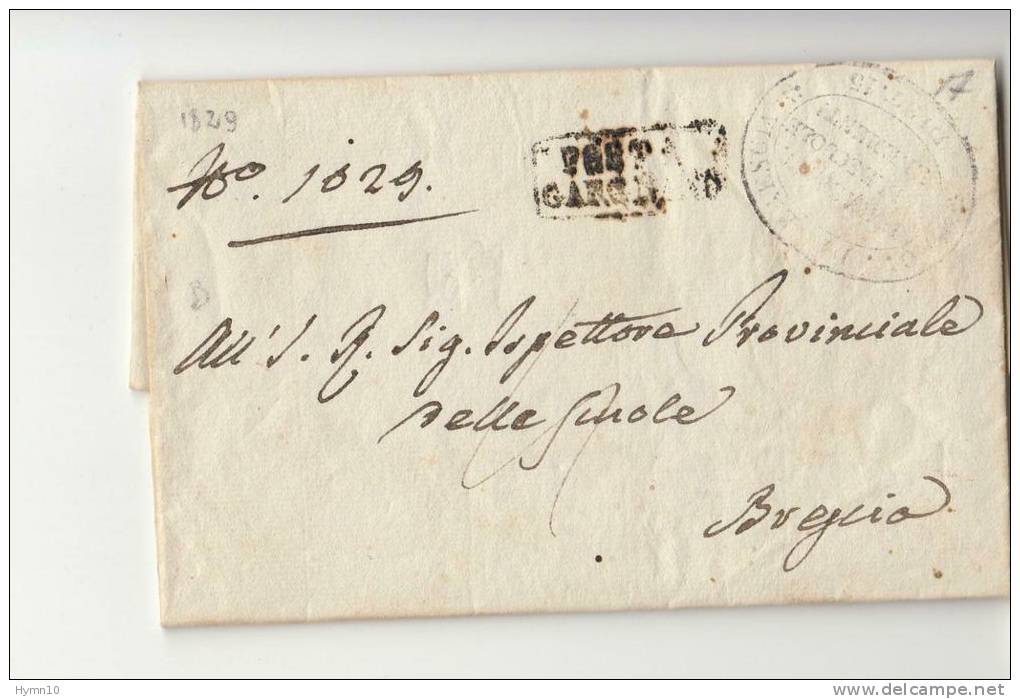 1829
17
No. 1829.
POSTA
B
All' I. R. Sig. Ispettore Provinciale
delle Scuole
Brescia
Hymn10
delcampe.net